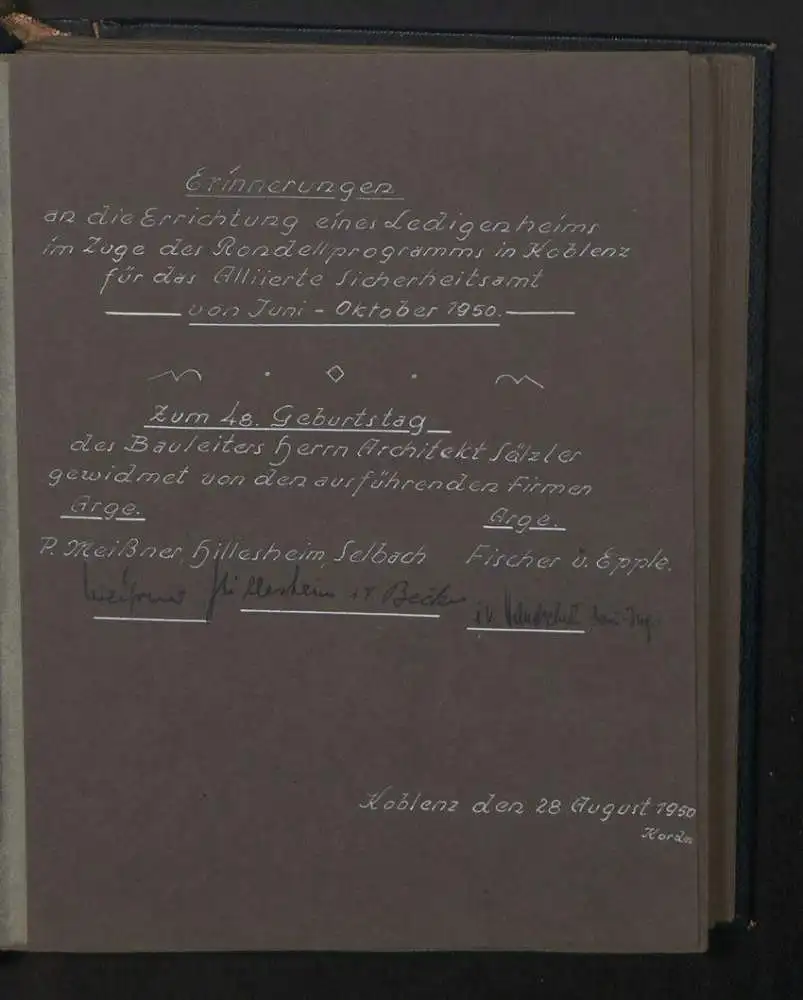 Erinnerungen
an die Errichtung eines Ledigenheims
im Zuge des Rondellprogramms in Koblenz
für das Alliierte Sicherheitsamt
von Juni - Oktober 1950.
Zum 48. Geburtstag
des Bauleiters Herrn Architekt Sälzler
gewidmet von den ausführenden Firmen
Arge. Arge.
P. Meißner, Hillesheim, Selbach Fischer u. Epple.
Meißner Hillesheim i.V. Becker i.V.
Koblenz den 28 August 1950